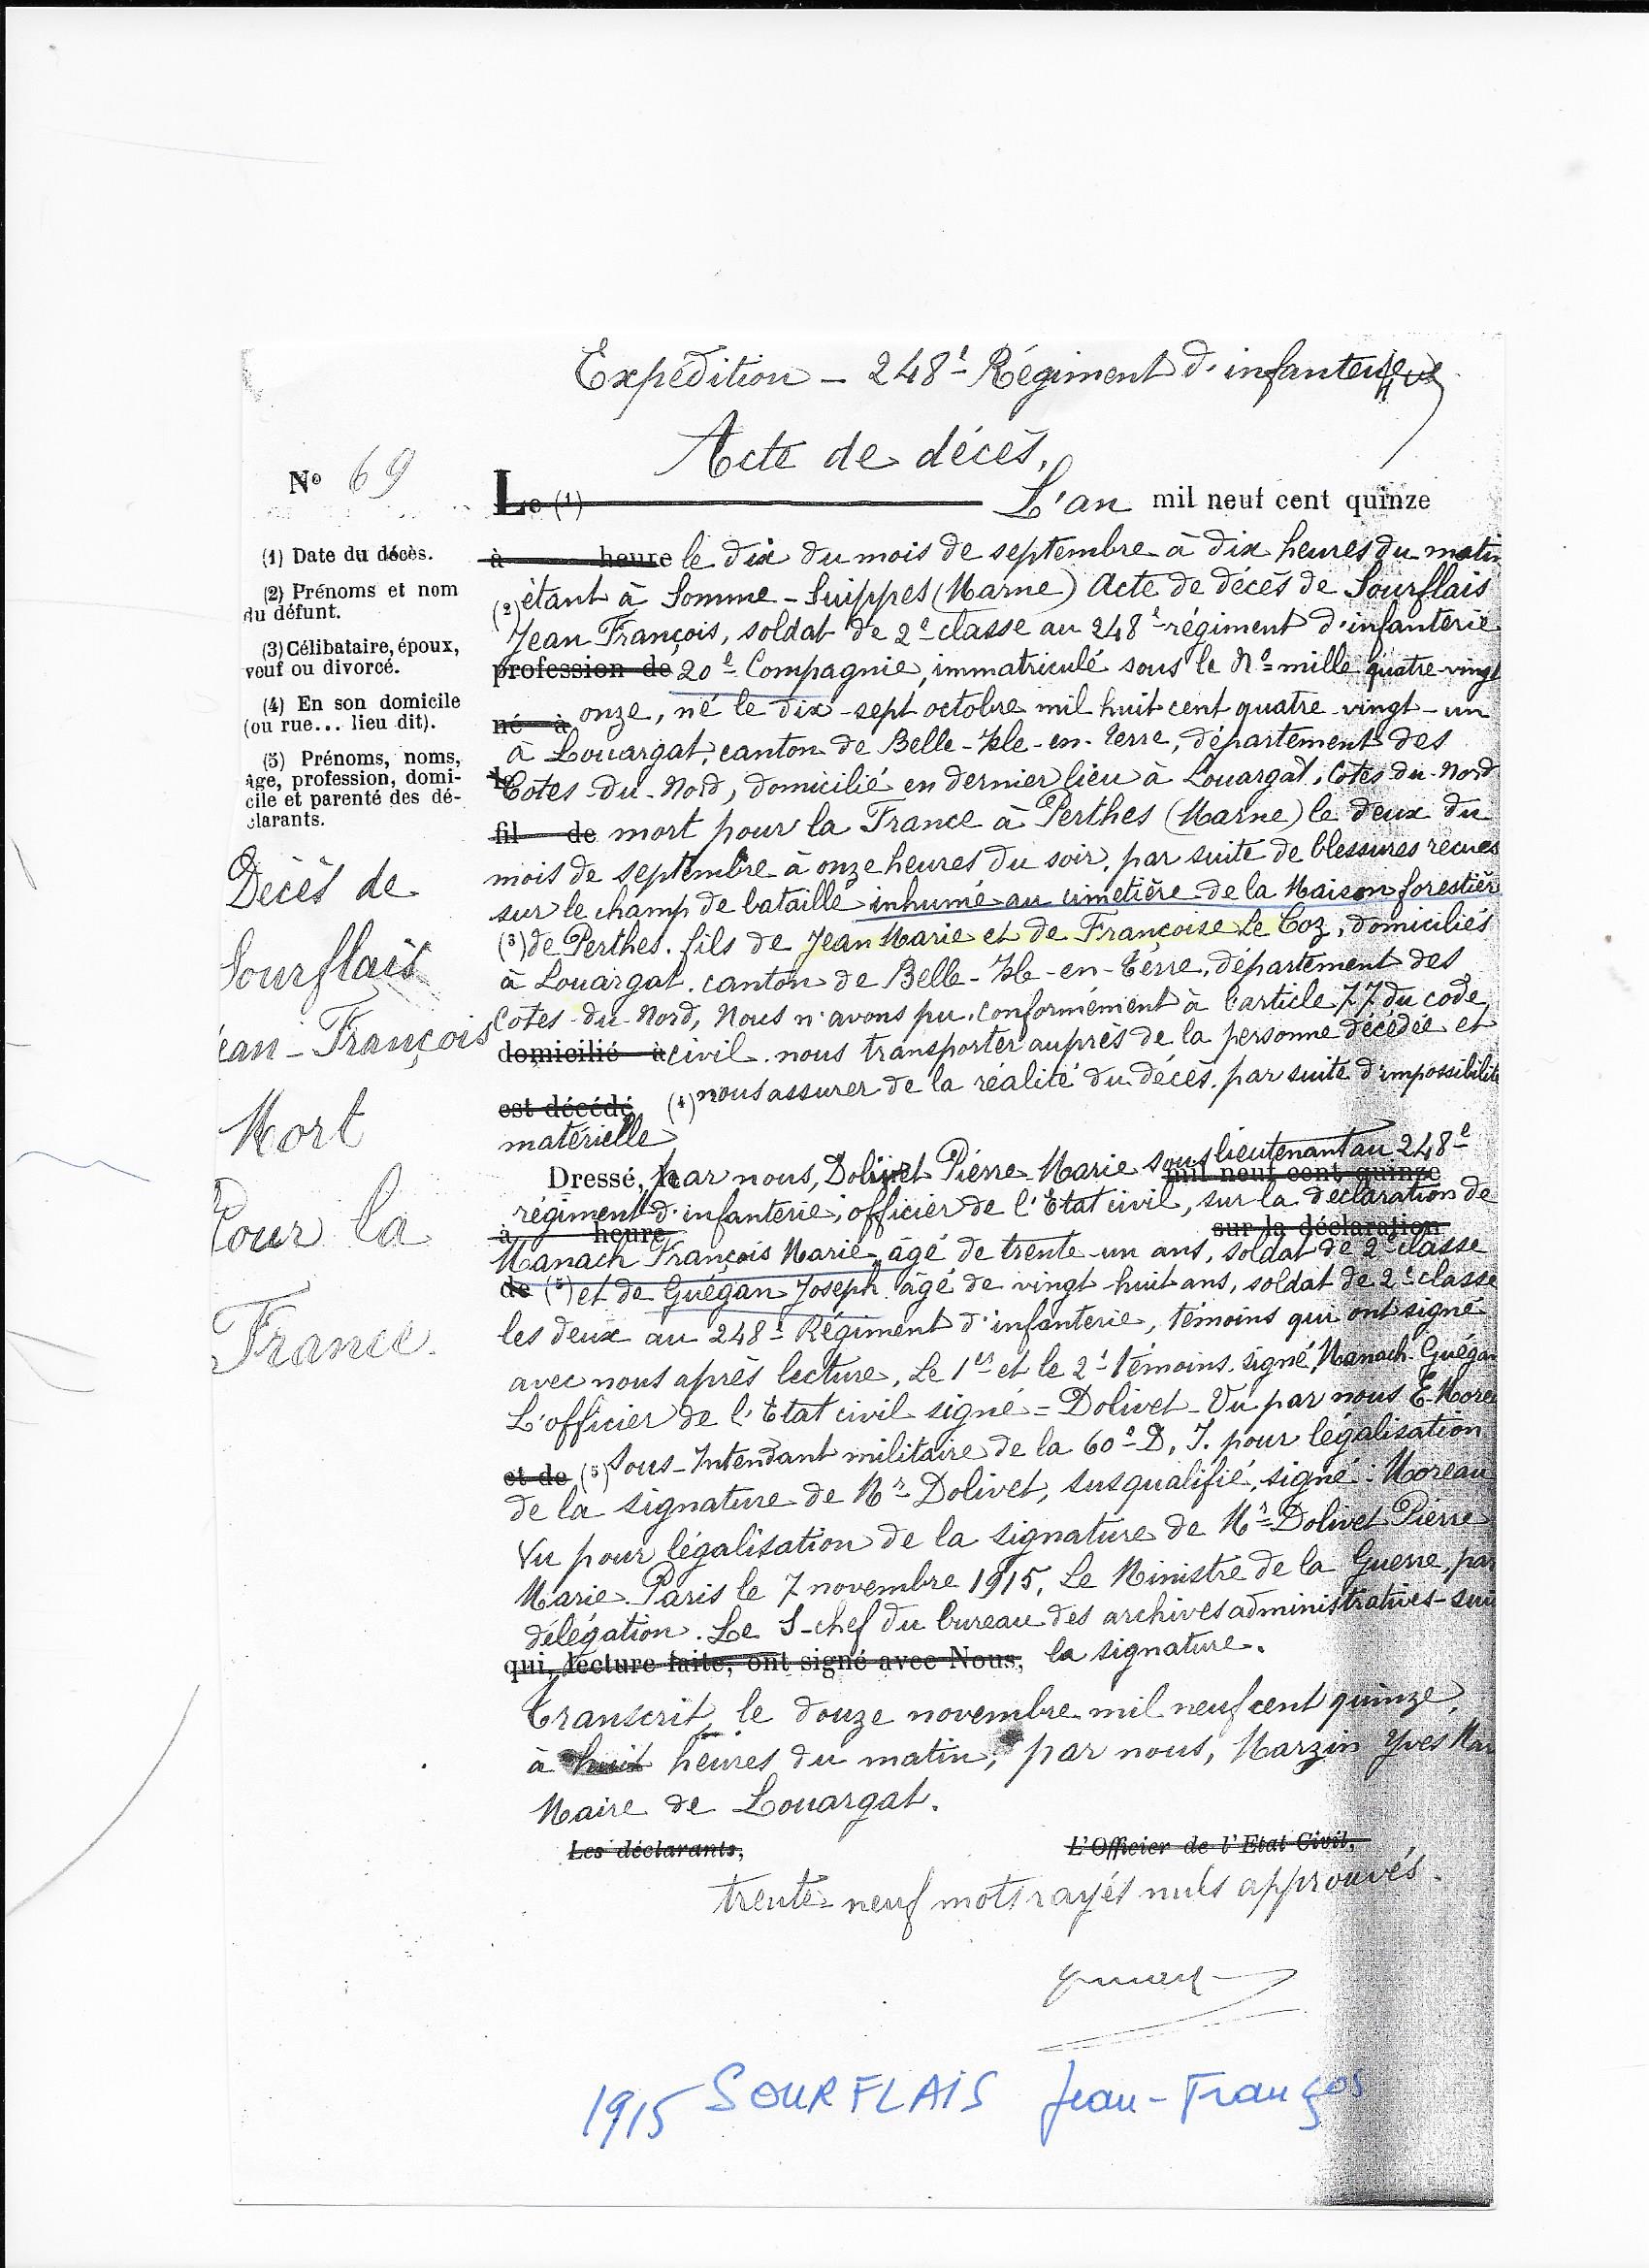 Expédition - 248e Régiment d'infanterie
Acte de décès.
No 69
Le (1) L'an mil neuf cent quinze
(1) Date du décès.
(2) Prénoms et nom
du défunt.
(3) Célibataire, époux,
veuf ou divorcé.
(4) En son domicile
(ou rue... lieu dit).
(5) Prénoms, noms,
âge, profession, domi-
cile et parenté des dé-
clarants.
Décès de
Sourflais
ean-François
Mort
Pour la
France.
à heure le dix du mois de septembre à dix heures du matin
(2) étant à Somme-Suippes (Marne) Acte de décès de Sourflais
Jean François, soldat de 2e classe au 248e régiment d'infanterie
profession de 20e Compagnie, immatriculé sous le No mille quatre-vingt
né à onze, né le dix-sept octobre mil huit cent quatre-vingt-un
à Louargat, canton de Belle-Isle-en-Terre, département des
le Cotes-du-Nord, domicilié en dernier lieu à Louargat, Cotes-du-Nord
fil de mort pour la France à Perthes (Marne) le deux du
mois de septembre à onze heures du soir, par suite de blessures recues
sur le champ de bataille inhumé au cimetière de la Maison forestièr
(3) de Perthes. fils de Jean Marie et de Françoise Le Coz, domiciliés
à Louargat. canton de Belle-Isle-en-Terre, département des
Cotes-du-Nord, Nous n'avons pu, conformément à l'article 77 du code
domicilié à civil. nous transporter auprès de la personne décédée et
est décédé (4) nous assurer de la réalité du décès. par suite d'impossibilité
matérielle
Dressé, par nous, Dolivet Pierre-Marie sous lieutenant au 248e
mil neuf cent quinze
régiment d'infanterie, officier de l'Etat civil, sur la déclaration de
à heure sur la déclaration
Manach François Marie, âgé de trente-un ans, soldat de 2e classe
de (5) et de Guégan Joseph âgé de vingt huit ans, soldat de 2e classe
les deux au 248e Régiment d'infanterie, témoins qui ont signé
avec nous après lecture, Le 1er et le 2e témoins. signé, Manach. Guégan
L'officier de l'Etat civil signé = Dolivet - Vu par nous E. More
et de (5) Sous-Intendant militaire de la 60e D. I. pour légalisation
de la signature de Mr Dolivet, susqualifié, signé: Moreau
Vu pour légalisation de la signature de Mr Dolivet Pierre
Marie. Paris le 7 novembre 1915, Le Ministre de la Guerre, par
délégation. Le S-chef du bureau des archives administratives - suit
qui, lecture faite, ont signé avec Nous, la signature.
Transcrit, le douze novembre mil neuf cent quinze,
à huit heures du matin, par nous, Marzin Yves Mar
Maire de Louargat.
Les déclarants, L'Officier de l'Etat Civil,
trente-neuf mots rayés nuls approuvés.
1915 SOURFLAIS Jean-François